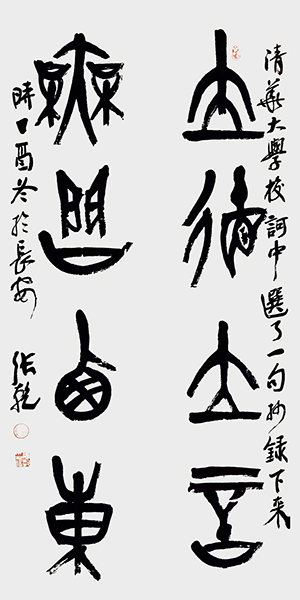 清華大學校訶中選了一句抄録下来
立德立言
無問西東
時丁酉冬於長安
張